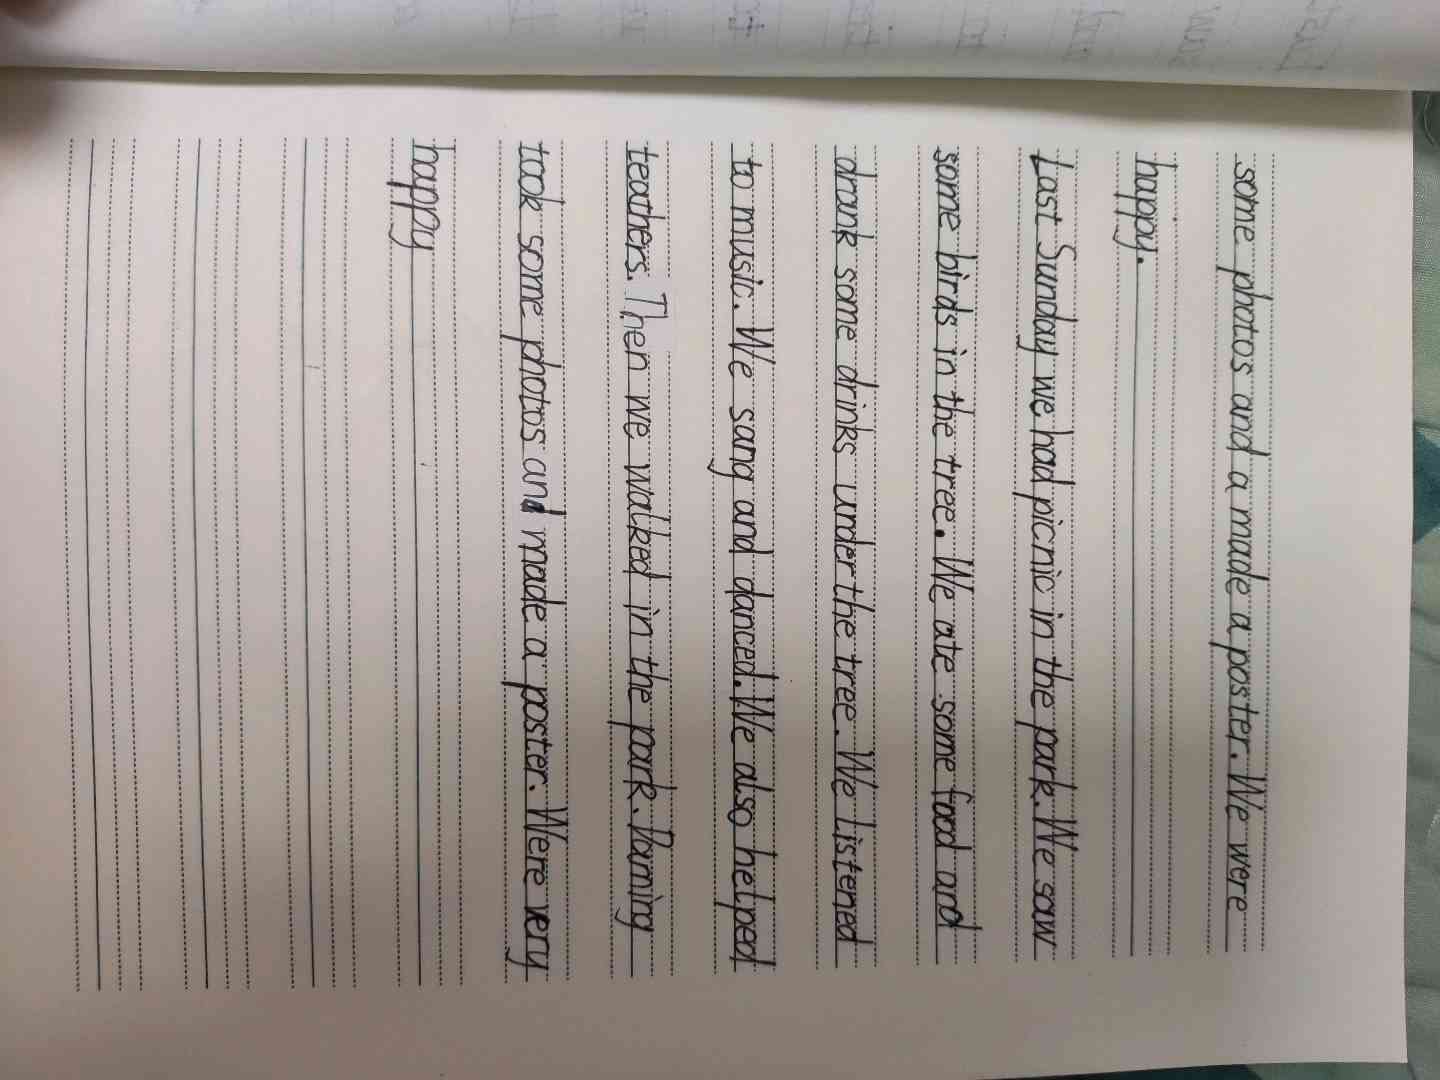 some photos and a made a poster. We were
happy.
Last Sunday we had picnic in the park. We saw
some birds in the tree. We ate some food and
drank some drinks under the tree. We listened
to music. We sang and danced. We also helped
teathers. Then we walked in the park. Daming
took some photos and made a poster. Were very
happy